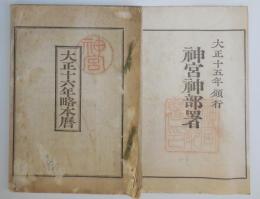 大正十五年頒行
神宮神部署
神宮
大正十六年略本暦